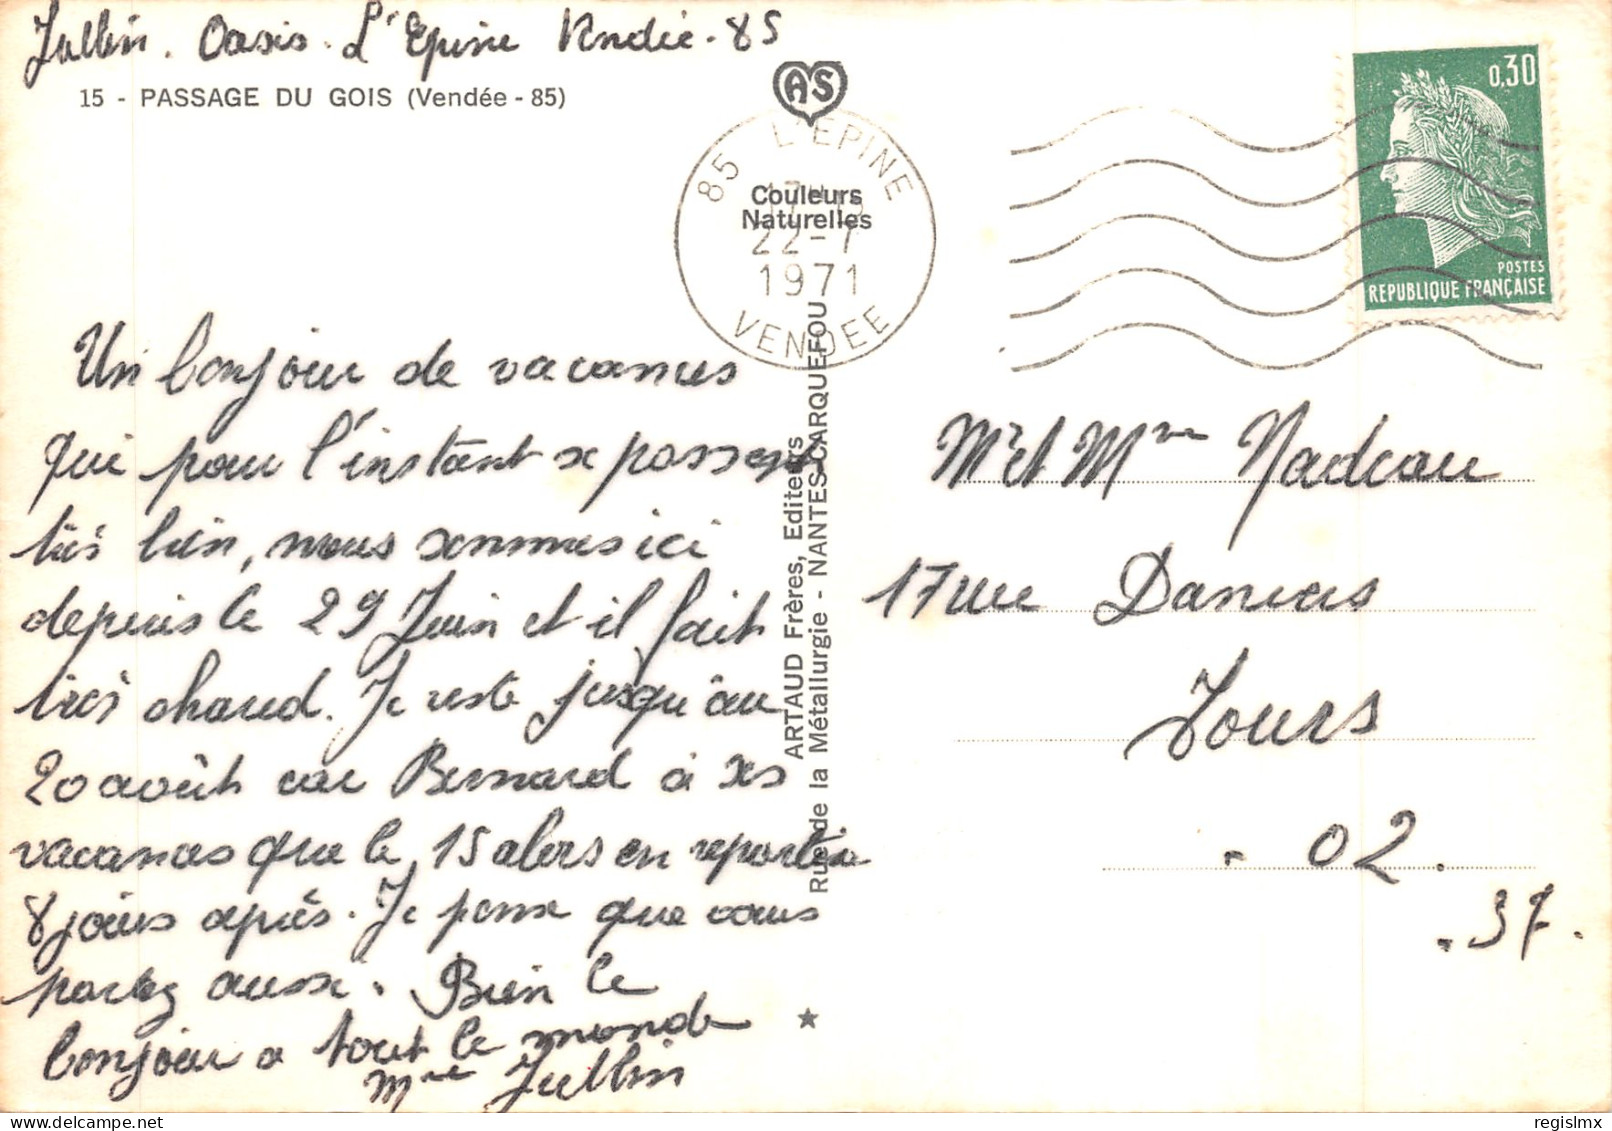 Jullin. Oasis. L'Epine Vendée. 85
15 - PASSAGE DU GOIS (Vendée - 85)
AS
Couleurs
Naturelles
85 L'EPINE
22-7
1971
VENDEE
0,30
POSTES
REPUBLIQUE FRANÇAISE
Un bonjour de vacances
qui pour l'instant se passent
très bien, nous sommes ici
depuis le 29 Juin et il fait
très chaud. Je reste jusqu'au
20 août car Bernard a ses
vacances que le 15 alors on repartira
8 jours après. Je pense que vous
partez aussi. Bien le
bonjour a tout le monde
Mme Jullin
ARTAUD Frères, Editeurs
Rue de la Métallurgie - NANTES-CARQUEFOU
Mr et Mme Nadeau
17 rue
Tours
- 02.
. 37.
regislmx